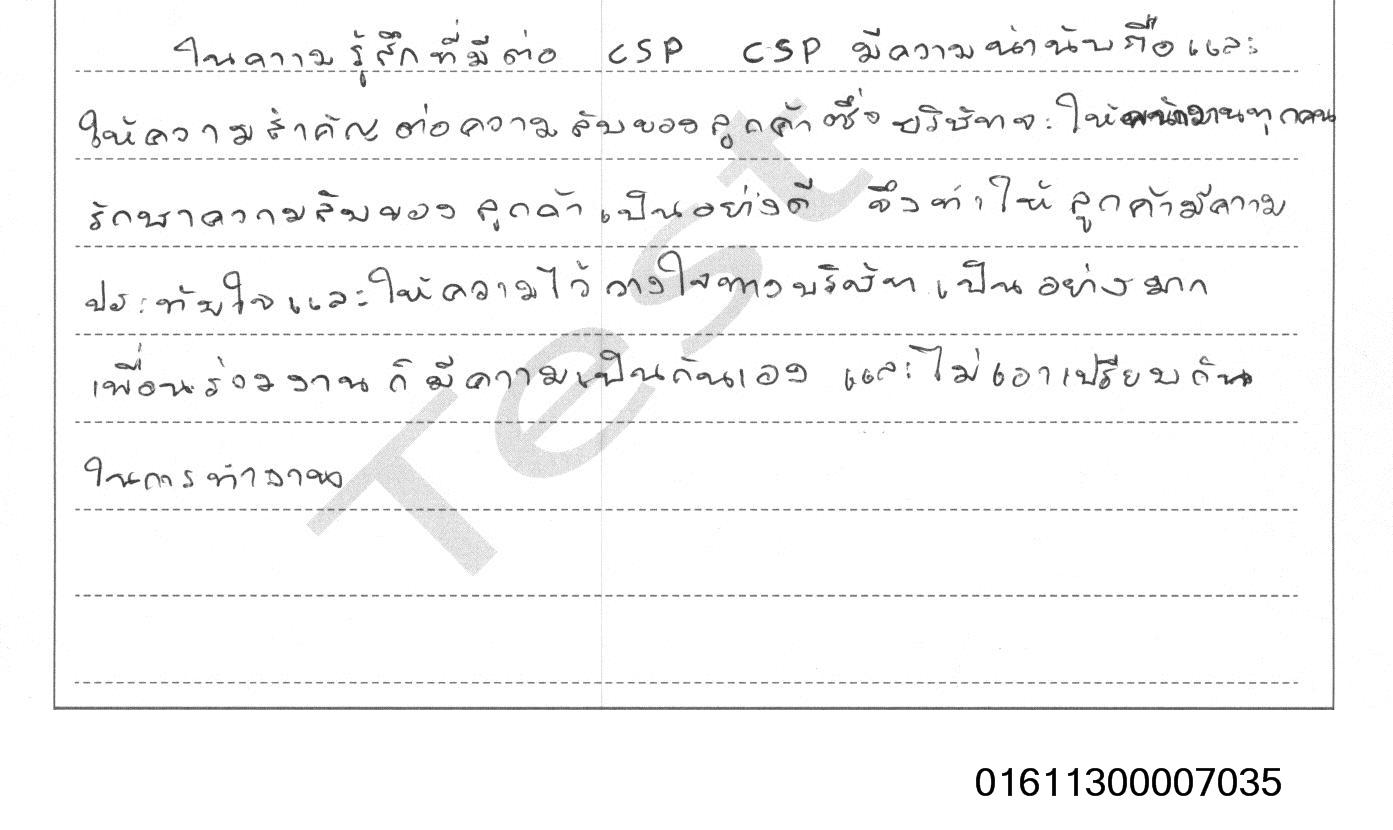 ในความรู้สึกที่มีต่อ CSP CSP มีความน่านับถือและ
ให้ความสำคัญต่อความลับของลูกค้าซึ่งบริษัทจะให้พนักงานทุกคน
รักษาความลับของลูกค้าเป็นอย่างดี จึงทำให้ลูกค้ามีความ
ประทับใจและให้ความไว้วางใจทางบริษัทเป็นอย่างมาก
เพื่อนร่วมงานก็มีความเป็นกันเอง และไม่เอาเปรียบกัน
ในการทำงาน
Test
01611300007035